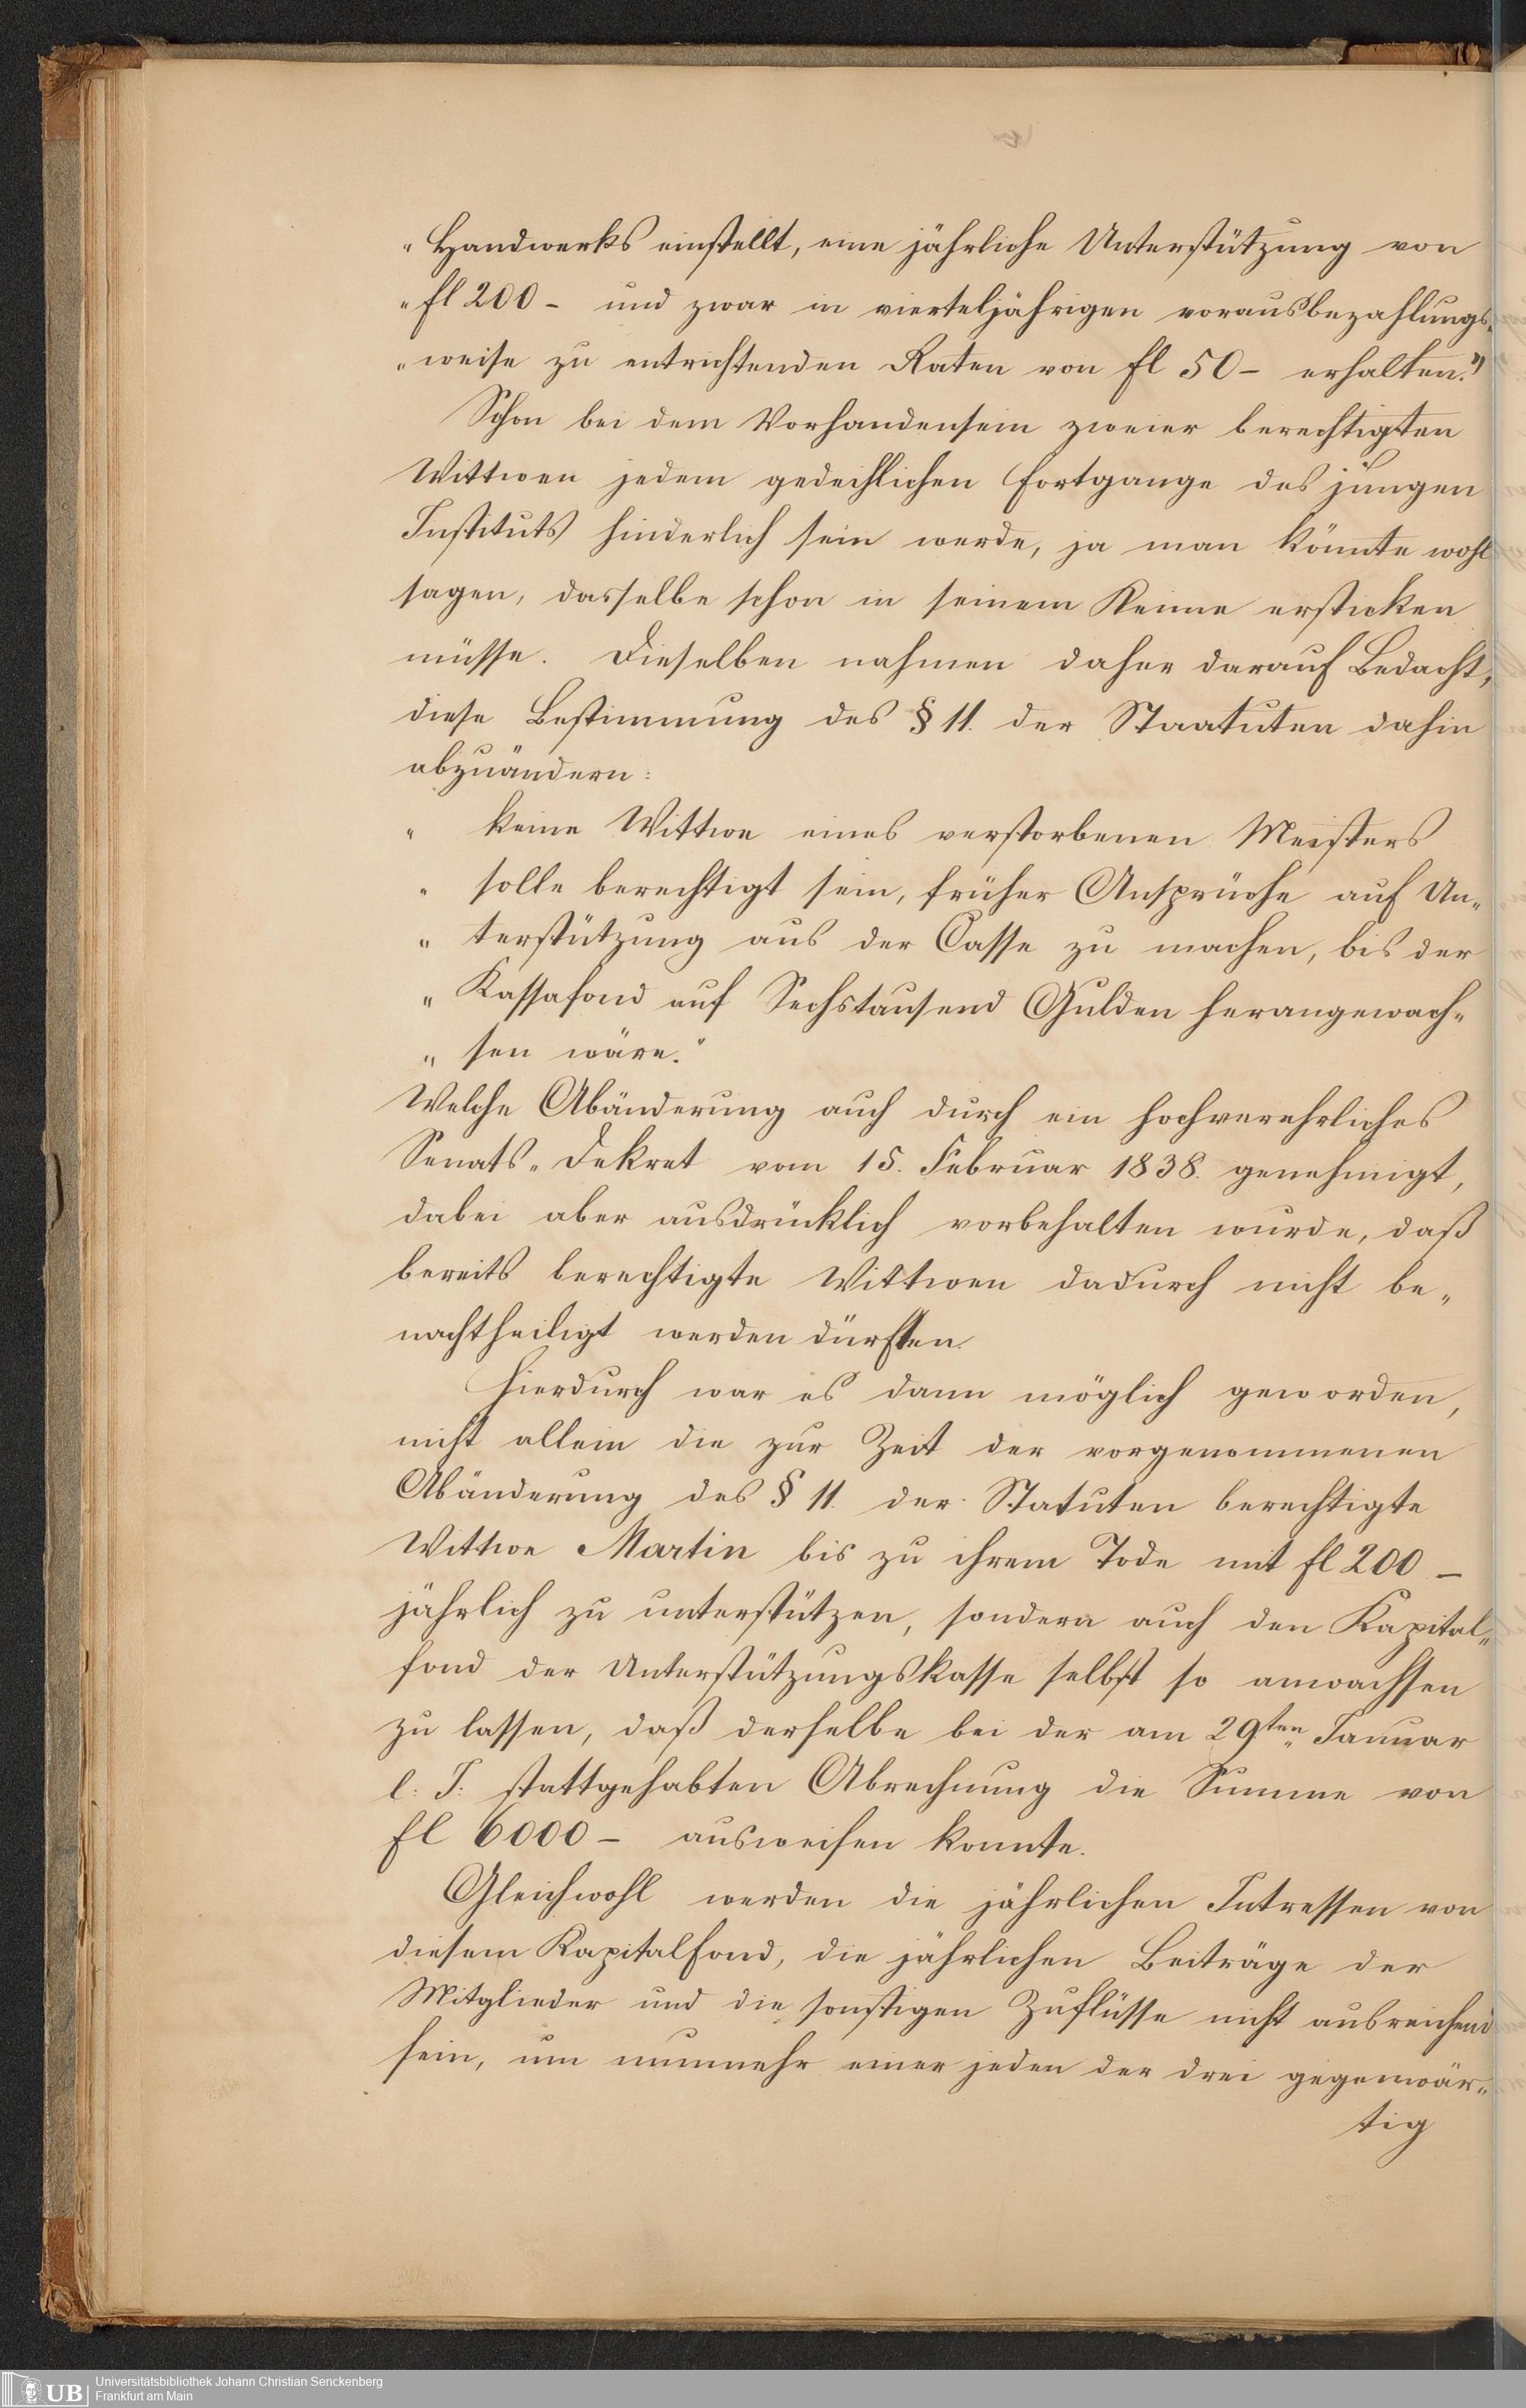 „Handwerks einstellt, eine jährliche Unterstützung von
„fl 200 – und zwar in vierteljährigen vorausbezahlungs-
„weise zu entrichtenden Raten von fl 50 – erhalten."
Schon bei dem Vorhandensein zweier berechtigten
Wittwen jedem gedeihlichen Fortgange des jungen
Instituts hinderlich sein werde, ja man könnte wohl
sagen, dasselbe schon in seinem Keime ersticken
müsse. Dieselben nahmen daher darauf Bedacht,
diese Bestimmung des § 11. der Staatuten dahin
abzuändern:
„ keine Wittwe eines verstorbenen Meisters
„ solle berechtigt sein, früher Ansprüche auf Un-
„ terstützung aus der Casse zu machen, bis der
„ Kassafond auf Sechstausend Gulden herangewach-
„ sen wäre."
Welche Abänderung auch durch ein hochverehrliches
Senats-Dekret vom 15. Februar 1838. genehmigt,
dabei aber ausdrücklich vorbehalten wurde, daß
bereits berechtigte Wittwen dadurch nicht be-
nachtheiligt werden dürften.
Hierdurch war es dann möglich geworden,
nicht allein die zur Zeit der vorgenommenen
Abänderung des § 11. der Statuten berechtigte
Wittwe Martin bis zu ihrem Tode mit fl 200 –
jährlich zu unterstützen, sondern auch den Kapital-
fond der Unterstützungskasse selbst so anwachsen
zu lassen, daß derselbe bei der am 29ten Januar
l: J: stattgehabten Abrechnung die Summe von
fl 6000 – ausweisen konnte.
Gleichwohl werden die jährlichen Intressen von
diesem Kapitalfond, die jährlichen Beiträge der
Mitglieder und die sonstigen Zuflüsse nicht ausreichend
sein, um nunmehr einer jeden der drei gegenwär-
tig
UB
Universitätsbibliothek Johann Christian Senckenberg
Frankfurt am Main